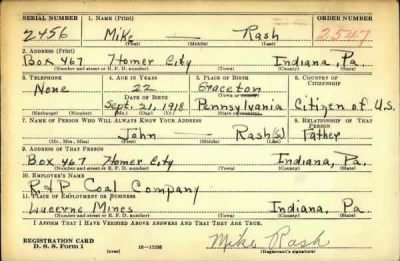 SERIAL NUMBER 1. NAME (Print) ORDER NUMBER
2456 Mike — Rash 2547
(First) (Middle) (Last)
2. ADDRESS (Print)
Box 467 Homer City Indiana, Pa.
(Number and street or R. F. D. number) (Town) (County) (State)
3. TELEPHONE 4. AGE IN YEARS 5. PLACE OF BIRTH 6. COUNTRY OF CITIZENSHIP
None 22 Graceton
DATE OF BIRTH (Town or county)
Sept. 21, 1918 Pennsylvania Citizen of U.S.
(Exchange) (Number) (Mo.) (Day) (Yr.) (State or country)
7. NAME OF PERSON WHO WILL ALWAYS KNOW YOUR ADDRESS 8. RELATIONSHIP OF THAT PERSON
John — Rash(s) Father
(Mr., Mrs., Miss) (First) (Middle) (Last)
9. ADDRESS OF THAT PERSON
Box 467 Homer City Indiana, Pa.
(Number and street or R. F. D. number) (Town) (County) (State)
10. EMPLOYER'S NAME
R & P Coal Company
11. PLACE OF EMPLOYMENT OR BUSINESS
Lucerne Mines Indiana, Pa.
(Number and street or R. F. D. number) (Town) (County) (State)
I AFFIRM THAT I HAVE VERIFIED ABOVE ANSWERS AND THAT THEY ARE TRUE.
REGISTRATION CARD
D. S. S. Form 1 (over) 16—17105 Mike Rash
(Registrant's signature)